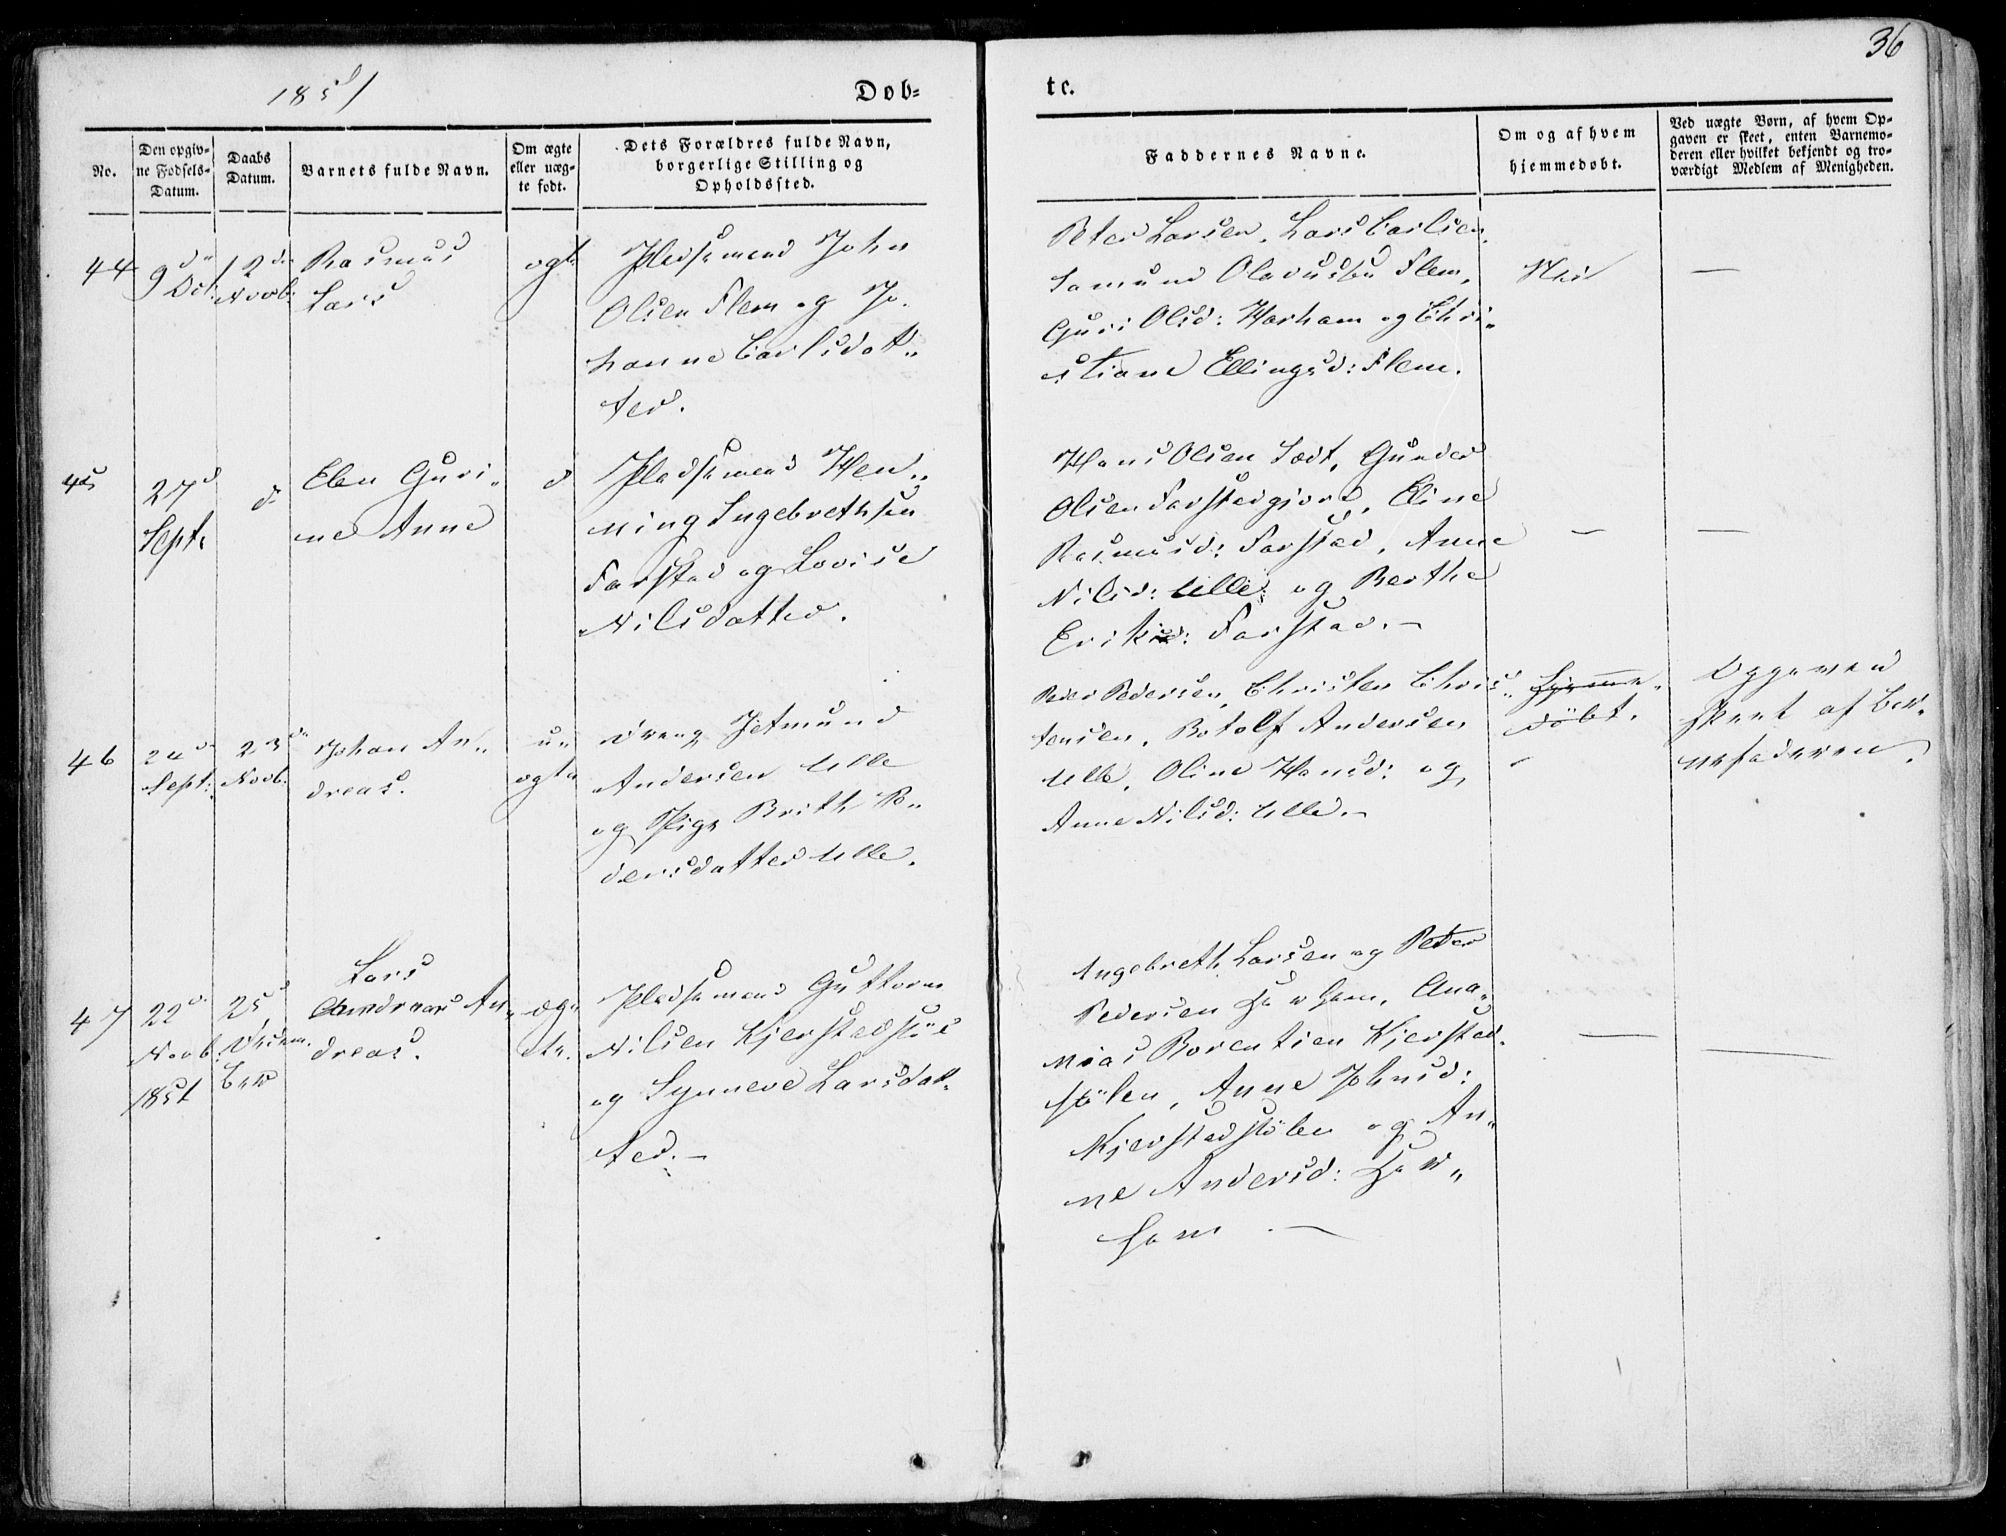 36
1851
Døb=
te.
No.
Den opgiv=
ne Fødsels=
Datum.
Daabs
Datum.
Barnets fulde Navn.
Om ægte
eller uæg=
te født.
Dets Forældres fulde Navn,
borgerlige Stilling og
Opholdssted.
Faddernes Navne.
Om og af hvem
hjemmedøbt.
Ved uægte Børn, af hvem Op=
gaven er skeet, enten Barnemo=
deren eller hvilket bekjendt og tro=
værdigt Medlem af Menigheden.
44
9de
Oct:
12de
Novb:
Rasmus
Lars
ægte
Pladsemand John
Olsen Flem og Jo-
hanne Carlsdat„
ter.
Peter Larsen, Lars Carlsen,
Samund Olavussen Flem,
Guri Olsd: Harham og Chri„
stiane Ellingsd: Flem.
Nei
—
45
27d
Sept:
d
Elen Guri„
ne Anne
d
Pladsemand Hen„
ning Ingebrethsen
Farstad og Lovise
Nilsdatter.
Hans Olsen Sædt, Gunder
Olsen Farstadgjore, Eline
Rasmusd: Farstad, Anne
Nilsd: Ulle og Berthe
Eriksd: Farstad. —
—
—
46
24de
Sept:
23de
Novb:
Johan An„
dreas.
u„
ægte
Dreng Jetmund
Andersen Ulle
og Pige Brith Pe„
dersdatter Ulle.
Peder Pedersen, Christen Chris„
tensen, Botolf Andersen
Ulle, Oline Hansd: og
Anne Nilsd: Ulle. —
Hjemme„
døbt.
Opgaven
skeet af Bar„
nefaderen.
47
22de
Novb.
1851
25d
Decem„
ber
Lars
An„
dreas.
æg„
te.
Pladsemand Guttorm
Nilsen Kjerstadstöl
og Synneve Larsdat„
ter. —
Ingebreth Larsen og Peter
Pedersen Harham, Ana„
nias Borentien Kjerstad„
stölen, Anne Johnsd:
Kjerstadstölen og An„
ne Andersd: Har„
ham. —
—
—